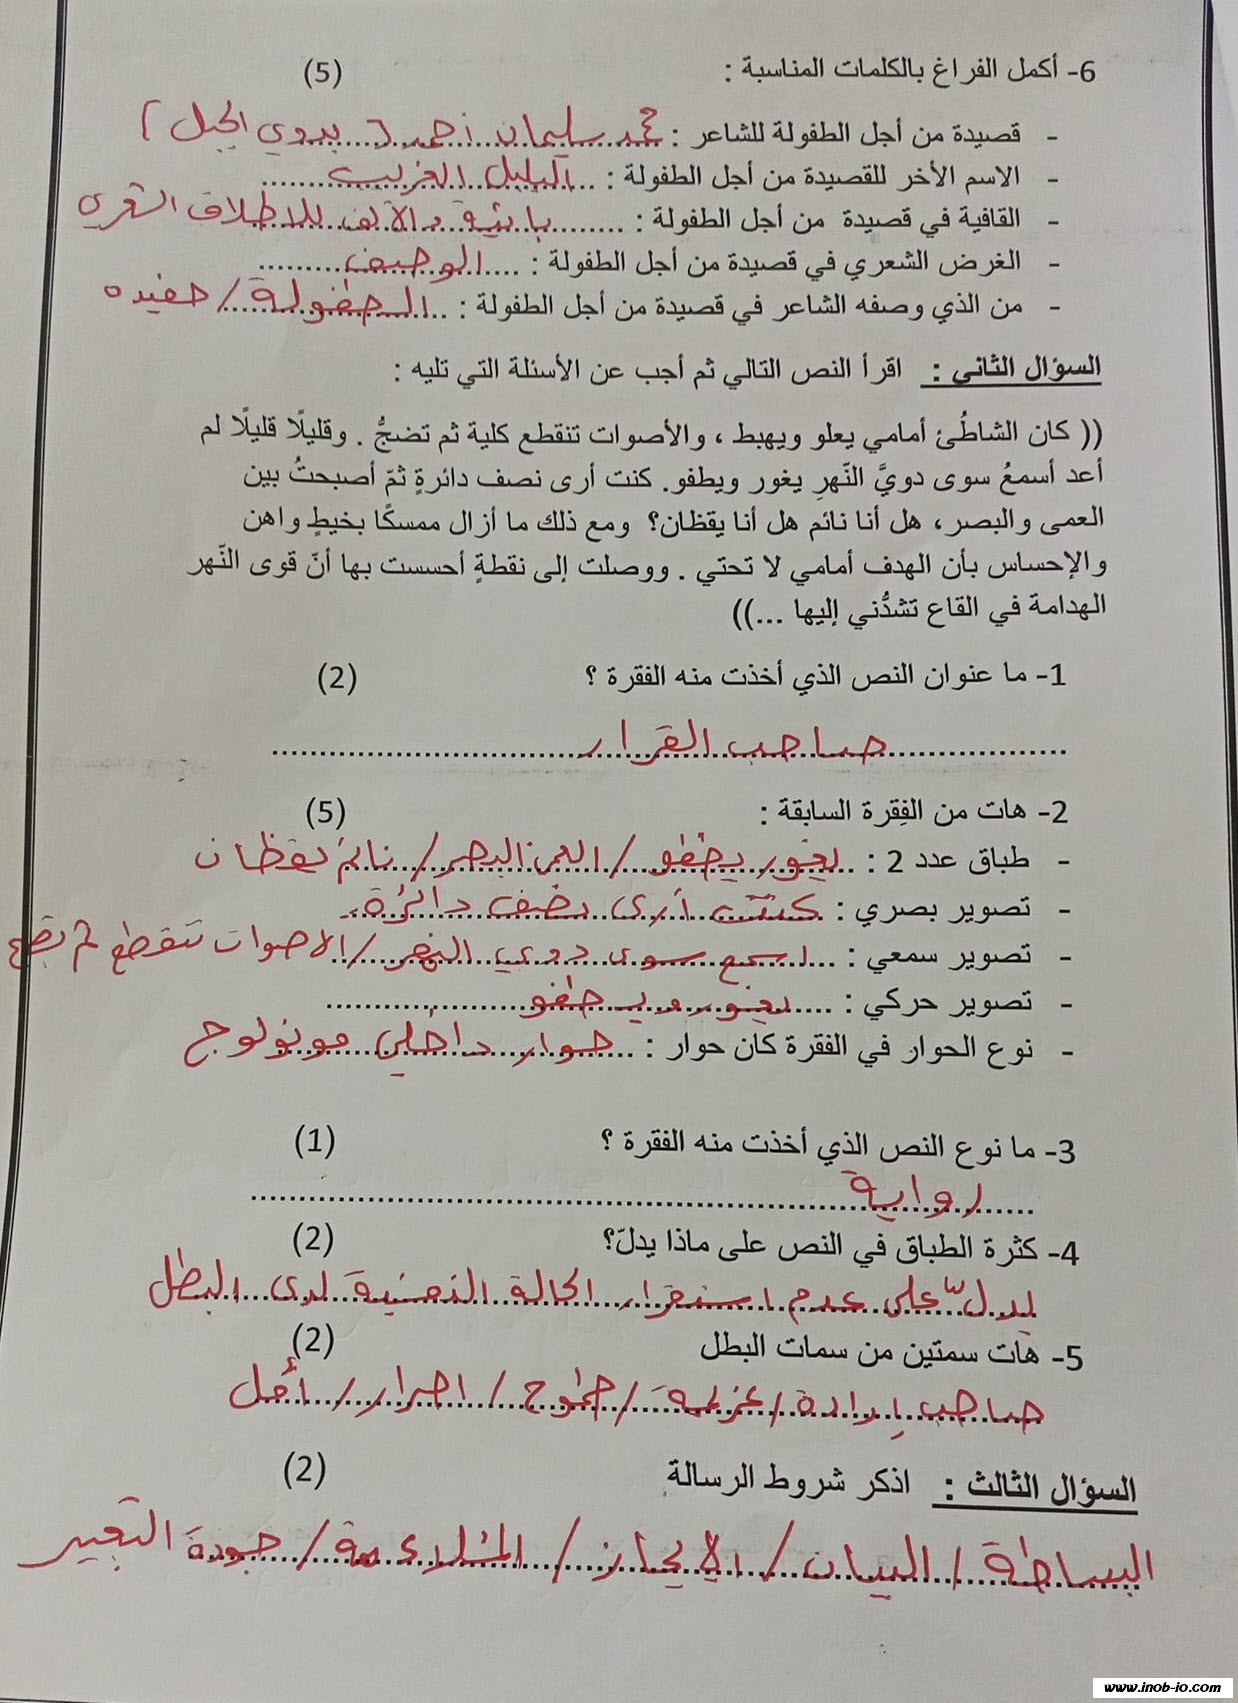 6- أكمل الفراغ بالكلمات المناسبة : (5)
- قصيدة من أجل الطفولة للشاعر : محمد سليمان أحمد ( بدوي الجبل )
- الاسم الأخر للقصيدة من أجل الطفولة : البلبل الغريب
- القافية في قصيدة من أجل الطفولة : بائية والألف للاطلاق الشعري
- الغرض الشعري في قصيدة من أجل الطفولة : الوصف
- من الذي وصفه الشاعر في قصيدة من أجل الطفولة : الطفولة / حفيده
السؤال الثاني : اقرأ النص التالي ثم أجب عن الأسئلة التي تليه :
(( كان الشاطُئ أمامي يعلو ويهبط ، والأصوات تنقطع كلية ثم تضجُّ . وقليلًا قليلًا لم
أعد أسمعُ سوى دويَّ النّهرِ يغور ويطفو. كنت أرى نصف دائرةٍ ثمّ أصبحتُ بين
العمى والبصر، هل أنا نائم هل أنا يقظان؟ ومع ذلك ما أزال ممسكًا بخيطٍ واهن
والإحساس بأن الهدف أمامي لا تحتي . ووصلت إلى نقطةٍ أحسست بها أنّ قوى النّهر
الهدامة في القاع تشدُّني إليها ...))
1- ما عنوان النص الذي أخذت منه الفقرة ؟ (2)
صاحب القرار
2- هات من الفِقرة السابقة : (5)
- طباق عدد 2 : يغور يطفو / العمى البصر / نائم يقظان
- تصوير بصري : كنت أرى نصف دائرة
- تصوير سمعي : اسمع سوى دوي النهر / الاصوات تنقطع ثم تضج
- تصوير حركي : يغور ويطفو
- نوع الحوار في الفقرة كان حوار : حوار داخلي مونولوج
3- ما نوع النص الذي أخذت منه الفقرة ؟ (1)
رواية
4- كثرة الطباق في النص على ماذا يدلّ؟ (2)
يدلّ على عدم استقرار الحالة الذهنية لدى البطل
5- هات سمتين من سمات البطل (2)
صاحب إرادة / عزيمة / طموح / اصرار / أمل
السؤال الثالث : اذكر شروط الرسالة (2)
البساطة / البيان / الإيجاز / الملاءمة / جودة التعبير
www.inob-io.com